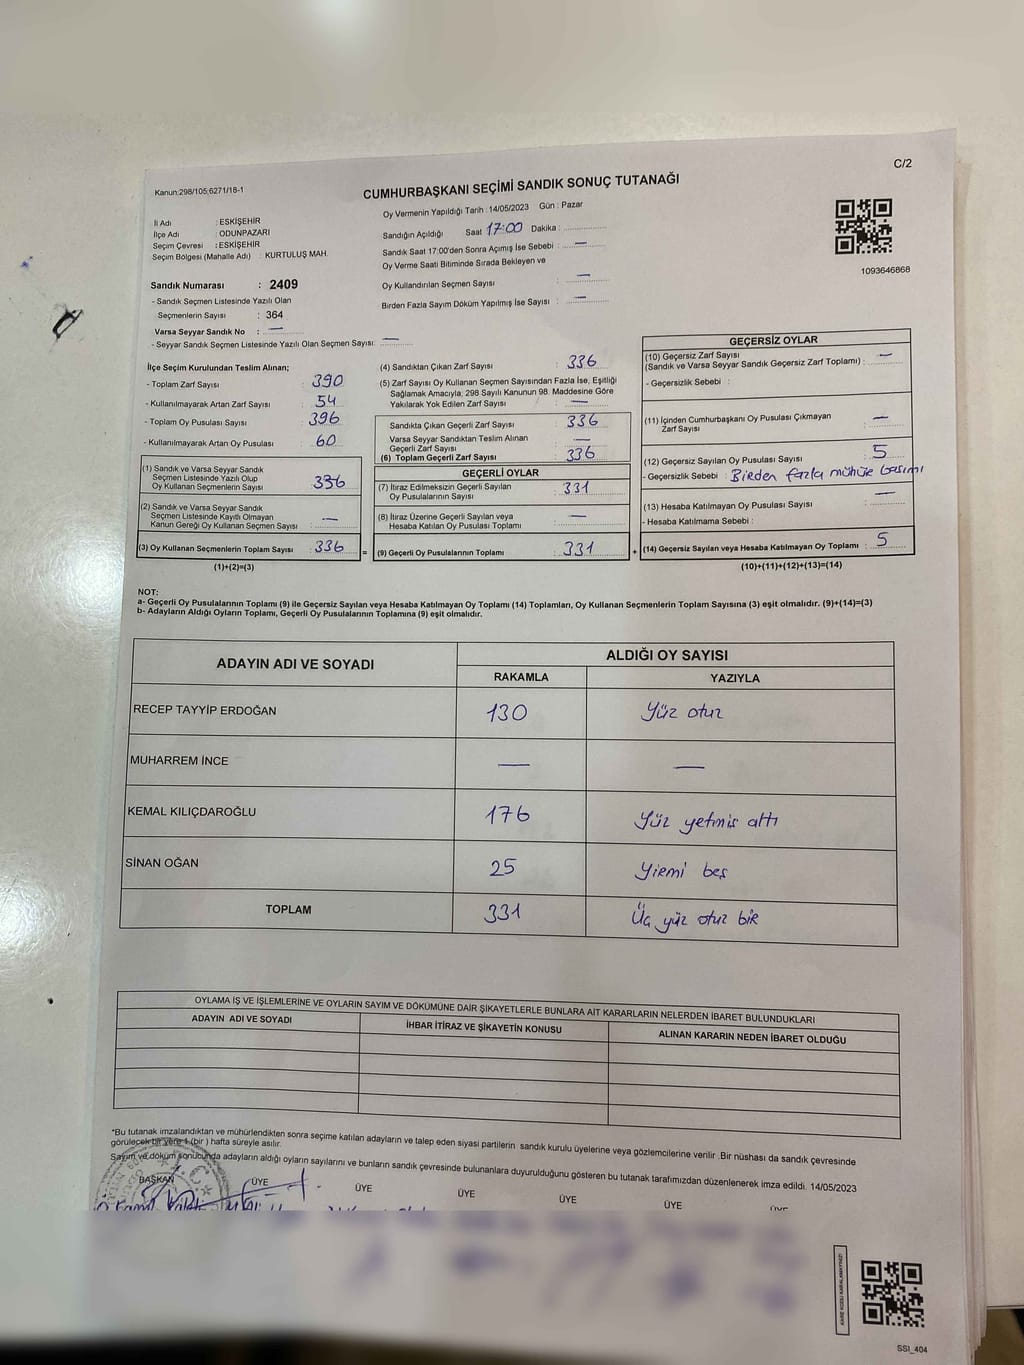 C/2
Kanun:298/105;6271/18-1
CUMHURBAŞKANI SEÇİMİ SANDIK SONUÇ TUTANAĞI
İl Adı : ESKİŞEHİR
İlçe Adı : ODUNPAZARI
Seçim Çevresi : ESKİŞEHİR
Seçim Bölgesi (Mahalle Adı) : KURTULUŞ MAH.
Oy Vermenin Yapıldığı Tarih :14/05/2023 Gün : Pazar
Sandığın Açıldığı Saat 17:00 Dakika :
Sandık Saat 17:00'den Sonra Açımış İse Sebebi : —
Oy Verme Saati Bitiminde Sırada Bekleyen ve
Oy Kullandırılan Seçmen Sayısı —
Birden Fazla Sayım Döküm Yapılmış İse Sayısı : —
1093646868
Sandık Numarası : 2409
- Sandık Seçmen Listesinde Yazılı Olan
Seçmenlerin Sayısı : 364
Varsa Seyyar Sandık No : —
- Seyyar Sandık Seçmen Listesinde Yazılı Olan Seçmen Sayısı: —
İlçe Seçim Kurulundan Teslim Alınan;
- Toplam Zarf Sayısı : 390
- Kullanılmayarak Artan Zarf Sayısı : 54
- Toplam Oy Pusulası Sayısı : 396
- Kullanılmayarak Artan Oy Pusulası : 60
(1) Sandık ve Varsa Seyyar Sandık
Seçmen Listesinde Yazılı Olup
Oy Kullanan Seçmenlerin Sayısı : 336
(2) Sandık ve Varsa Seyyar Sandık
Seçmen Listesinde Kayıtlı Olmayan
Kanun Gereği Oy Kullanan Seçmen Sayısı : —
(3) Oy Kullanan Seçmenlerin Toplam Sayısı : 336
(1)+(2)=(3)
(4) Sandıktan Çıkan Zarf Sayısı : 336
(5) Zarf Sayısı Oy Kullanan Seçmen Sayısından Fazla İse, Eşitliği
Sağlamak Amacıyla; 298 Sayılı Kanunun 98. Maddesine Göre
Yakılarak Yok Edilen Zarf Sayısı : —
Sandıkta Çıkan Geçerli Zarf Sayısı : 336
Varsa Seyyar Sandıktan Teslim Alınan
Geçerli Zarf Sayısı : —
(6) Toplam Geçerli Zarf Sayısı : 336
GEÇERLİ OYLAR
(7) İtiraz Edilmeksizin Geçerli Sayılan
Oy Pusulalarının Sayısı : 331
(8) İtiraz Üzerine Geçerli Sayılan veya
Hesaba Katılan Oy Pusulası Toplamı : —
(9) Geçerli Oy Pusulalarının Toplamı : 331
GEÇERSİZ OYLAR
(10) Geçersiz Zarf Sayısı
(Sandık ve Varsa Seyyar Sandık Geçersiz Zarf Toplamı) : —
- Geçersizlik Sebebi :
(11) İçinden Cumhurbaşkanı Oy Pusulası Çıkmayan
Zarf Sayısı : —
(12) Geçersiz Sayılan Oy Pusulası Sayısı : 5
- Geçersizlik Sebebi : Birden fazla mühür basımı
(13) Hesaba Katılmayan Oy Pusulası Sayısı : —
- Hesaba Katılmama Sebebi :
(14) Geçersiz Sayılan veya Hesaba Katılmayan Oy Toplamı : 5
(10)+(11)+(12)+(13)=(14)
NOT:
a- Geçerli Oy Pusulalarının Toplamı (9) ile Geçersiz Sayılan veya Hesaba Katılmayan Oy Toplamı (14) Toplamları, Oy Kullanan Seçmenlerin Toplam Sayısına (3) eşit olmalıdır. (9)+(14)=(3)
b- Adayların Aldığı Oyların Toplamı, Geçerli Oy Pusulalarının Toplamına (9) eşit olmalıdır.
ADAYIN ADI VE SOYADI
ALDIĞI OY SAYISI
RAKAMLA YAZIYLA
RECEP TAYYİP ERDOĞAN 130 Yüz otuz
MUHARREM İNCE — —
KEMAL KILIÇDAROĞLU 176 Yüz yetmiş altı
SİNAN OĞAN 25 Yirmi beş
TOPLAM 331 Üç yüz otuz bir
OYLAMA İŞ VE İŞLEMLERİNE VE OYLARIN SAYIM VE DÖKÜMÜNE DAİR ŞİKAYETLERLE BUNLARA AİT KARARLARIN NELERDEN İBARET BULUNDUKLARI
ADAYIN ADI VE SOYADI İHBAR İTİRAZ VE ŞİKAYETİN KONUSU ALINAN KARARIN NEDEN İBARET OLDUĞU
*Bu tutanak imzalandıktan ve mühürlendikten sonra seçime katılan adayların ve talep eden siyasi partilerin sandık kurulu üyelerine veya gözlemcilerine verilir .Bir nüshası da sandık çevresinde
görülecek bir yere 1 (bir ) hafta süreyle asılır.
Sayım ve döküm sonucunda adayların aldığı oyların sayılarını ve bunların sandık çevresinde bulunanlara duyurulduğunu gösteren bu tutanak tarafımızdan düzenlenerek imza edildi. 14/05/2023
BAŞKAN ÜYE ÜYE ÜYE ÜYE ÜYE
T.C.
SSI_404